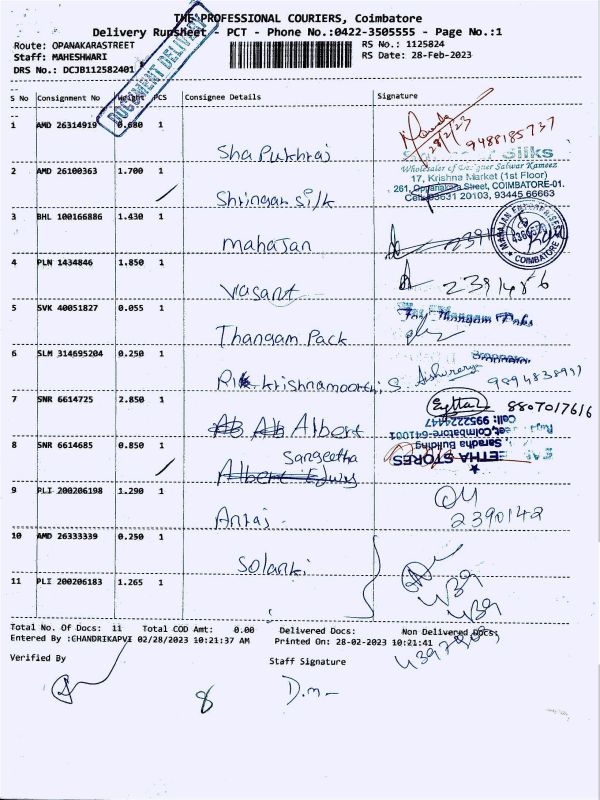 THE PROFESSIONAL COURIERS, Coimbatore
Delivery Runsheet - PCT - Phone No.:0422-3505555 - Page No.:1
Route: OPANAKARASTREET
RS No.: 1125824
Staff: MAHESHWARI
RS Date: 28-Feb-2023
DRS No.: DCJB112582401
DOCUMENT DELIVERY
S No Consignment No Weight PCS Consignee Details Signature
1 AMD 26314919 0.680 1
Sha Pukhraj
28/2/23
9488185737
Silks
Wholesaler of Designer Salwar Kameez
17, Krishna Market (1st Floor)
261, Oppanakara Street, COIMBATORE-01.
Cell: 93631 20103, 93445 66663
2 AMD 26100363 1.700 1
Shringar Silk
3 BHL 100166886 1.430 1
Mahajan
MAHAJAN ENTERPRISES
COIMBATORE
4 PLN 1434846 1.850 1
Vasant
2391486
5 SVK 40051827 0.055 1
Thangam Pack
6 SLM 314695204 0.250 1
krishnamoorthi, S
7 SNR 6614725 2.850 1
Albert
8807017616
Cell: 9952224447
Coimbatore-641001
Saradha Building
ETHA STORES
8 SNR 6614685 0.850 1
Sangeetha
9 PLI 200206198 1.290 1
Anraj
2390142
10 AMD 26333339 0.250 1
Solanki
11 PLI 200206183 1.265 1
439
439
Total No. Of Docs: 11 Total COD Amt: 0.00 Delivered Docs: Non Delivered Docs:
Entered By :CHANDRIKAPVI 02/28/2023 10:21:37 AM Printed On: 28-02-2023 10:21:41
Verified By
Staff Signature
8
D.m